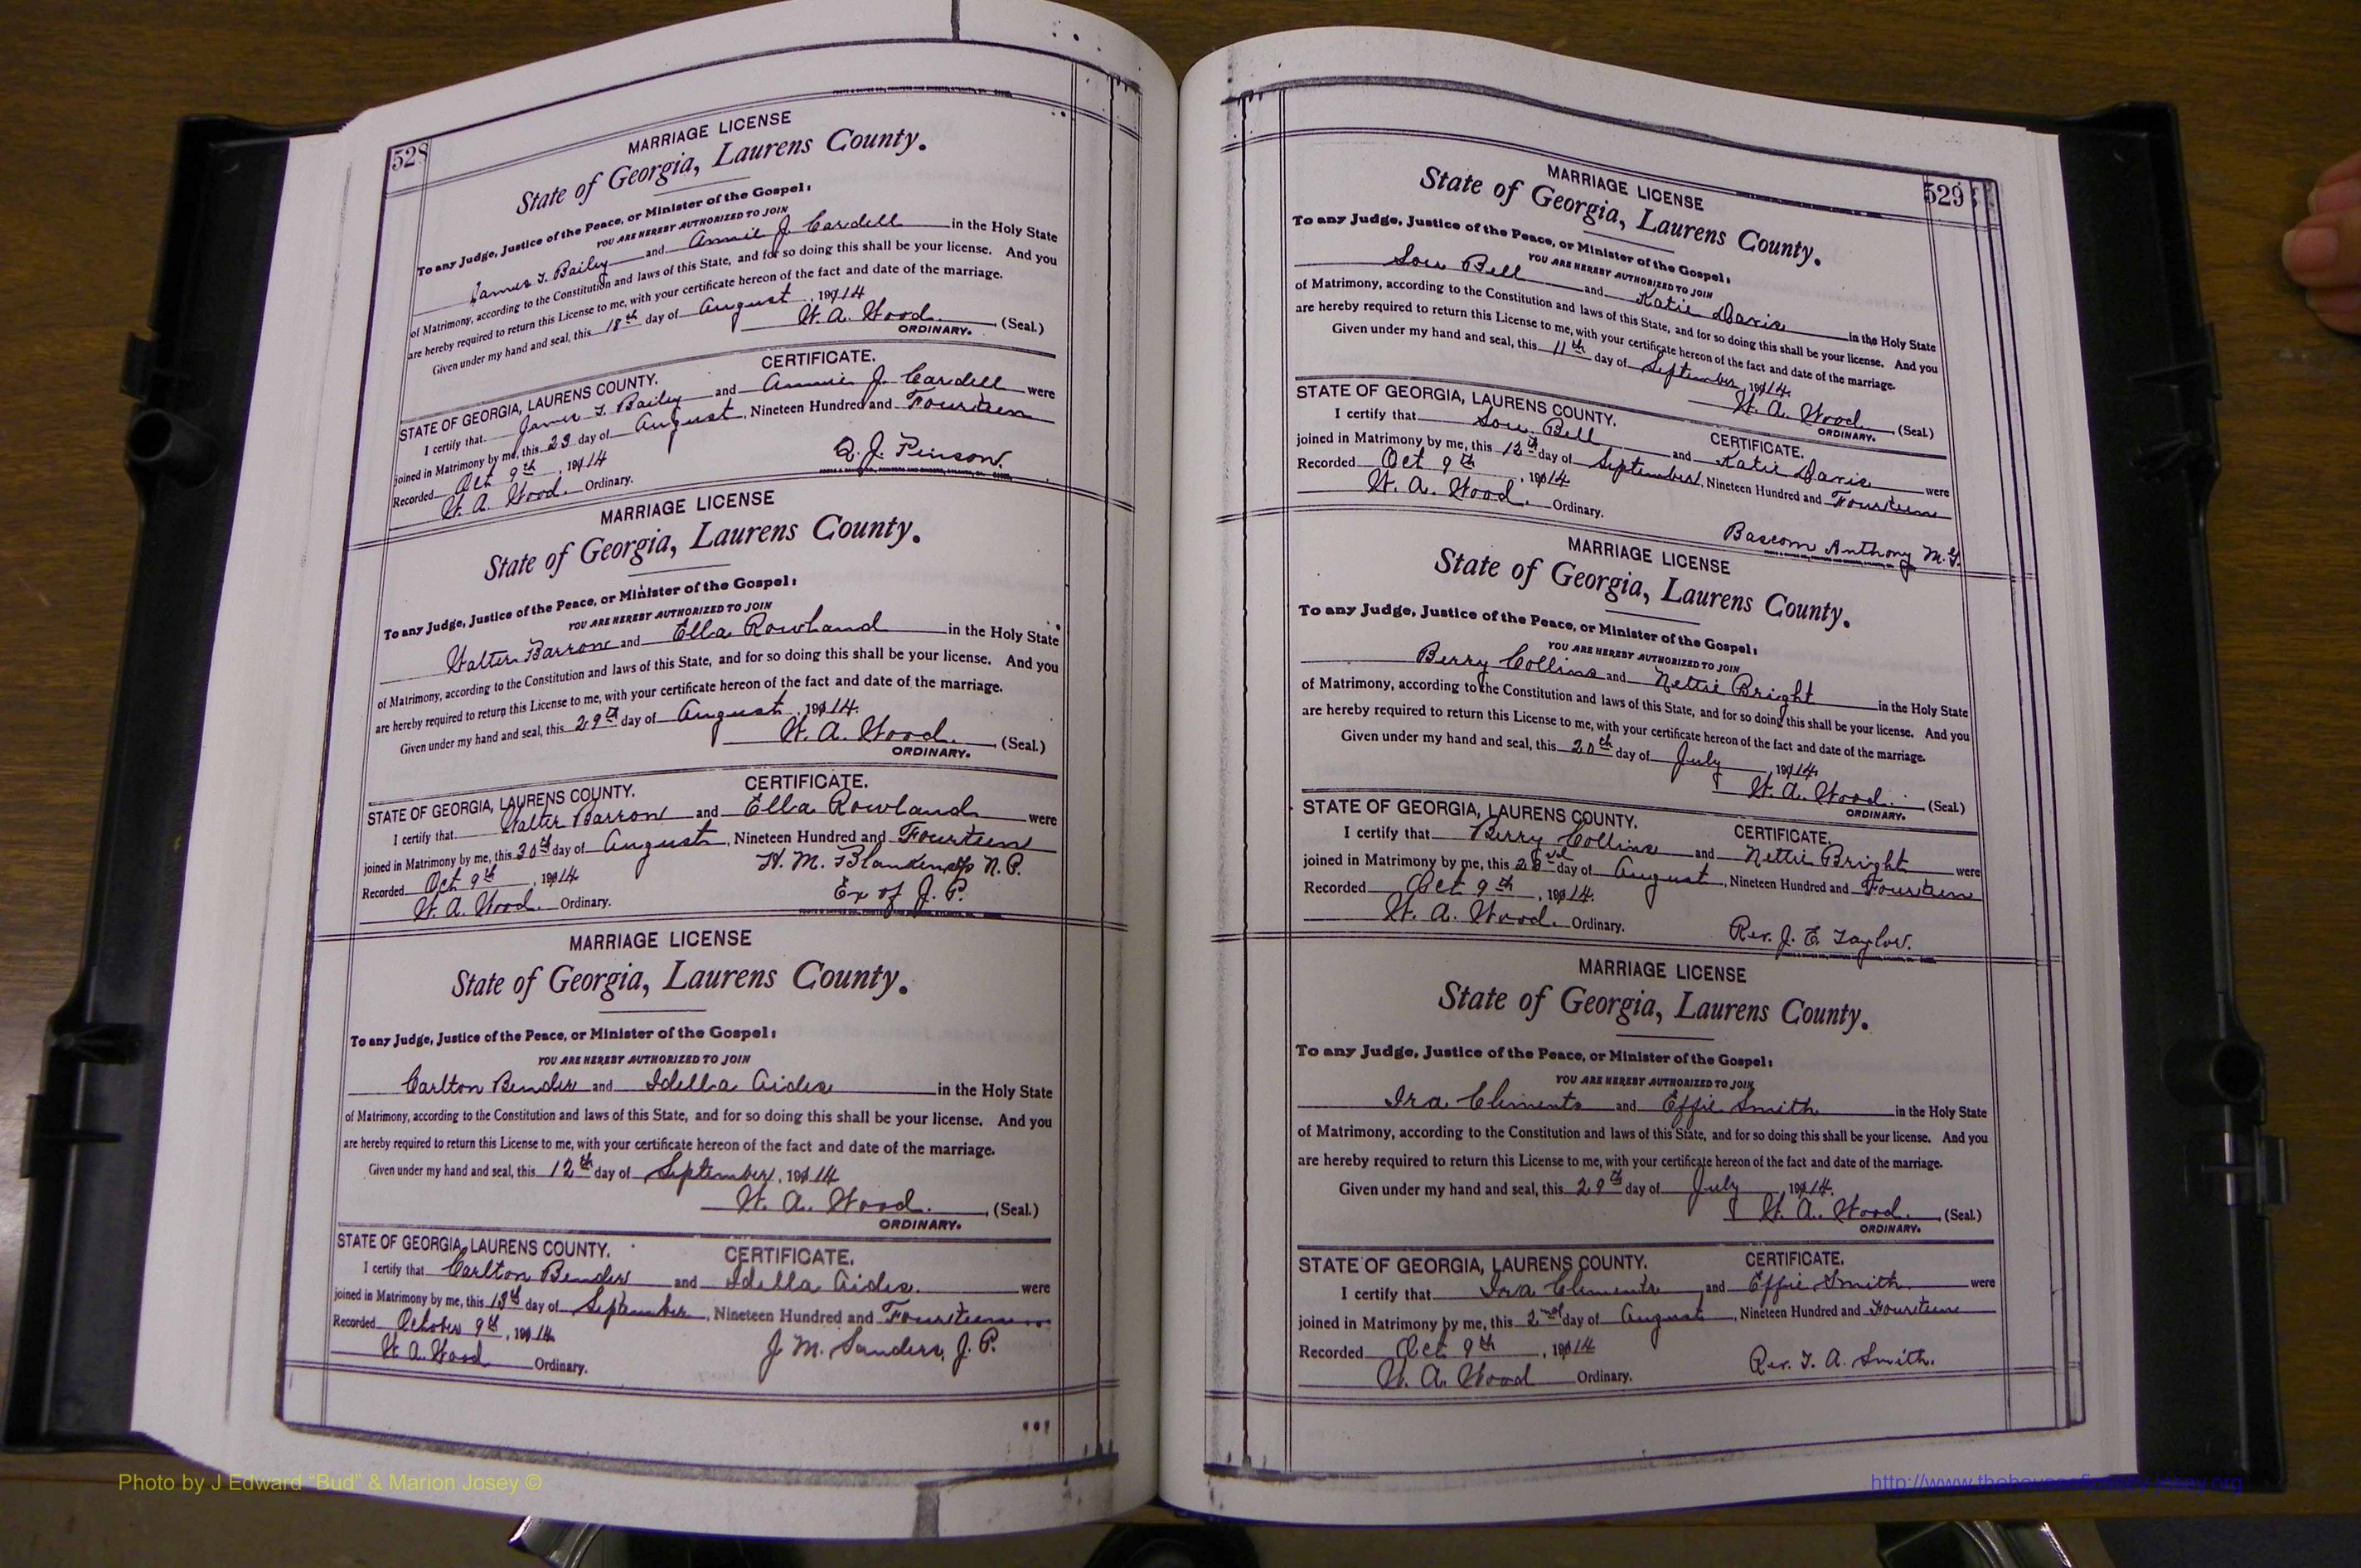 528
MARRIAGE LICENSE
State of Georgia, Laurens County.
To any Judge, Justice of the Peace, or Minister of the Gospel:
YOU ARE HEREBY AUTHORIZED TO JOIN
James T. Bailey and Annie J. Cardell in the Holy State
of Matrimony, according to the Constitution and laws of this State, and for so doing this shall be your license. And you
are hereby required to return this License to me, with your certificate hereon of the fact and date of the marriage.
Given under my hand and seal, this 18th day of August, 1914
W. A. Wood. (Seal.)
ORDINARY.
STATE OF GEORGIA, LAURENS COUNTY. CERTIFICATE.
I certify that James T. Bailey and Annie J. Cardell were
joined in Matrimony by me, this 23 day of August, Nineteen Hundred and Fourteen
Recorded Oct 9th, 1914
W. A. Wood. Ordinary. Q. J. Pinson.
MARRIAGE LICENSE
State of Georgia, Laurens County.
To any Judge, Justice of the Peace, or Minister of the Gospel:
YOU ARE HEREBY AUTHORIZED TO JOIN
Walter Barron and Ella Rowland in the Holy State
of Matrimony, according to the Constitution and laws of this State, and for so doing this shall be your license. And you
are hereby required to return this License to me, with your certificate hereon of the fact and date of the marriage.
Given under my hand and seal, this 29th day of August, 1914.
W. A. Wood. (Seal.)
ORDINARY.
STATE OF GEORGIA, LAURENS COUNTY. CERTIFICATE.
I certify that Walter Barron and Ella Rowland were
joined in Matrimony by me, this 30th day of August, Nineteen Hundred and Fourteen
Recorded Oct 9th, 1914 H. M. Blankenship N. P.
W. A. Wood. Ordinary. Ex of J. P.
MARRIAGE LICENSE
State of Georgia, Laurens County.
To any Judge, Justice of the Peace, or Minister of the Gospel:
YOU ARE HEREBY AUTHORIZED TO JOIN
Carlton Bender and Idella Aides in the Holy State
of Matrimony, according to the Constitution and laws of this State, and for so doing this shall be your license. And you
are hereby required to return this License to me, with your certificate hereon of the fact and date of the marriage.
Given under my hand and seal, this 12th day of September, 1914
W. A. Wood. (Seal.)
ORDINARY.
STATE OF GEORGIA, LAURENS COUNTY. CERTIFICATE.
I certify that Carlton Bender and Idella Aides. were
joined in Matrimony by me, this 13th day of September, Nineteen Hundred and Fourteen
Recorded October 9th, 1914
W. A. Wood Ordinary. J. M. Sanders, J. P.
529
MARRIAGE LICENSE
State of Georgia, Laurens County.
To any Judge, Justice of the Peace, or Minister of the Gospel:
YOU ARE HEREBY AUTHORIZED TO JOIN
Sou Bell and Katie Davis in the Holy State
of Matrimony, according to the Constitution and laws of this State, and for so doing this shall be your license. And you
are hereby required to return this License to me, with your certificate hereon of the fact and date of the marriage.
Given under my hand and seal, this 11th day of September, 1914.
W. A. Wood. (Seal.)
ORDINARY.
STATE OF GEORGIA, LAURENS COUNTY. CERTIFICATE.
I certify that Sou Bell and Katie Davis were
joined in Matrimony by me, this 12th day of September, Nineteen Hundred and Fourteen
Recorded Oct 9th, 1914
W. A. Wood. Ordinary.
Bascom Anthony M. G.
MARRIAGE LICENSE
State of Georgia, Laurens County.
To any Judge, Justice of the Peace, or Minister of the Gospel:
YOU ARE HEREBY AUTHORIZED TO JOIN
Berry Collins and Nettie Bright in the Holy State
of Matrimony, according to the Constitution and laws of this State, and for so doing this shall be your license. And you
are hereby required to return this License to me, with your certificate hereon of the fact and date of the marriage.
Given under my hand and seal, this 20th day of July, 1914
W. A. Wood. (Seal.)
ORDINARY.
STATE OF GEORGIA, LAURENS COUNTY. CERTIFICATE.
I certify that Berry Collins and Nettie Bright were
joined in Matrimony by me, this 23rd day of August, Nineteen Hundred and Fourteen
Recorded Oct 9th, 1914.
W. A. Wood. Ordinary. Rev. J. E. Taylor.
MARRIAGE LICENSE
State of Georgia, Laurens County.
To any Judge, Justice of the Peace, or Minister of the Gospel:
YOU ARE HEREBY AUTHORIZED TO JOIN
Ira Clements and Effie Smith in the Holy State
of Matrimony, according to the Constitution and laws of this State, and for so doing this shall be your license. And you
are hereby required to return this License to me, with your certificate hereon of the fact and date of the marriage.
Given under my hand and seal, this 29th day of July, 1914.
W. A. Wood. (Seal.)
ORDINARY.
STATE OF GEORGIA, LAURENS COUNTY. CERTIFICATE.
I certify that Ira Clements and Effie Smith. were
joined in Matrimony by me, this 2nd day of August, Nineteen Hundred and Fourteen
Recorded Oct 9th, 1914
W. A. Wood Ordinary. Rev. T. A. Smith.
Photo by J Edward “Bud” & Marion Josey ©